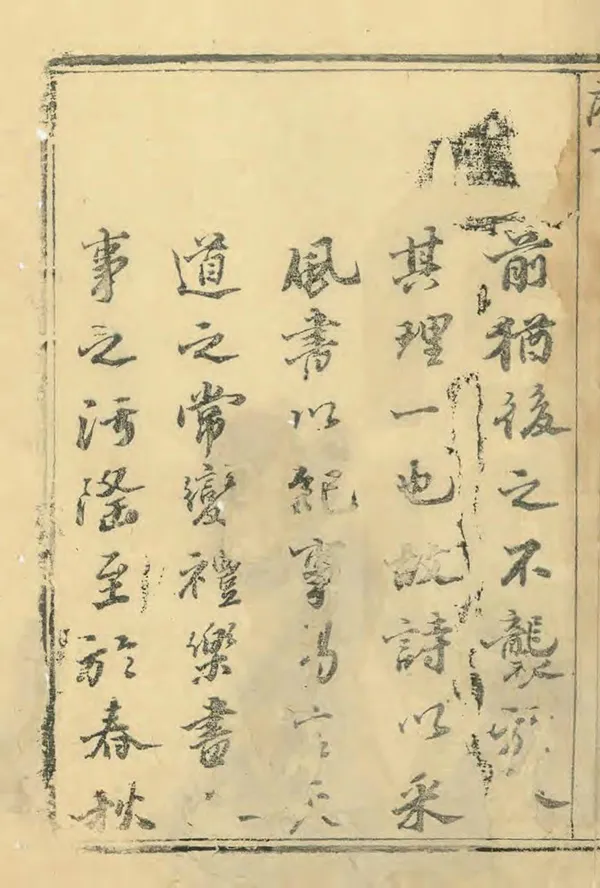 前猶後之不襲
其理一也故詩以采
風書以紀事易言天
道之常變禮樂書人
事之污隆至於春秋